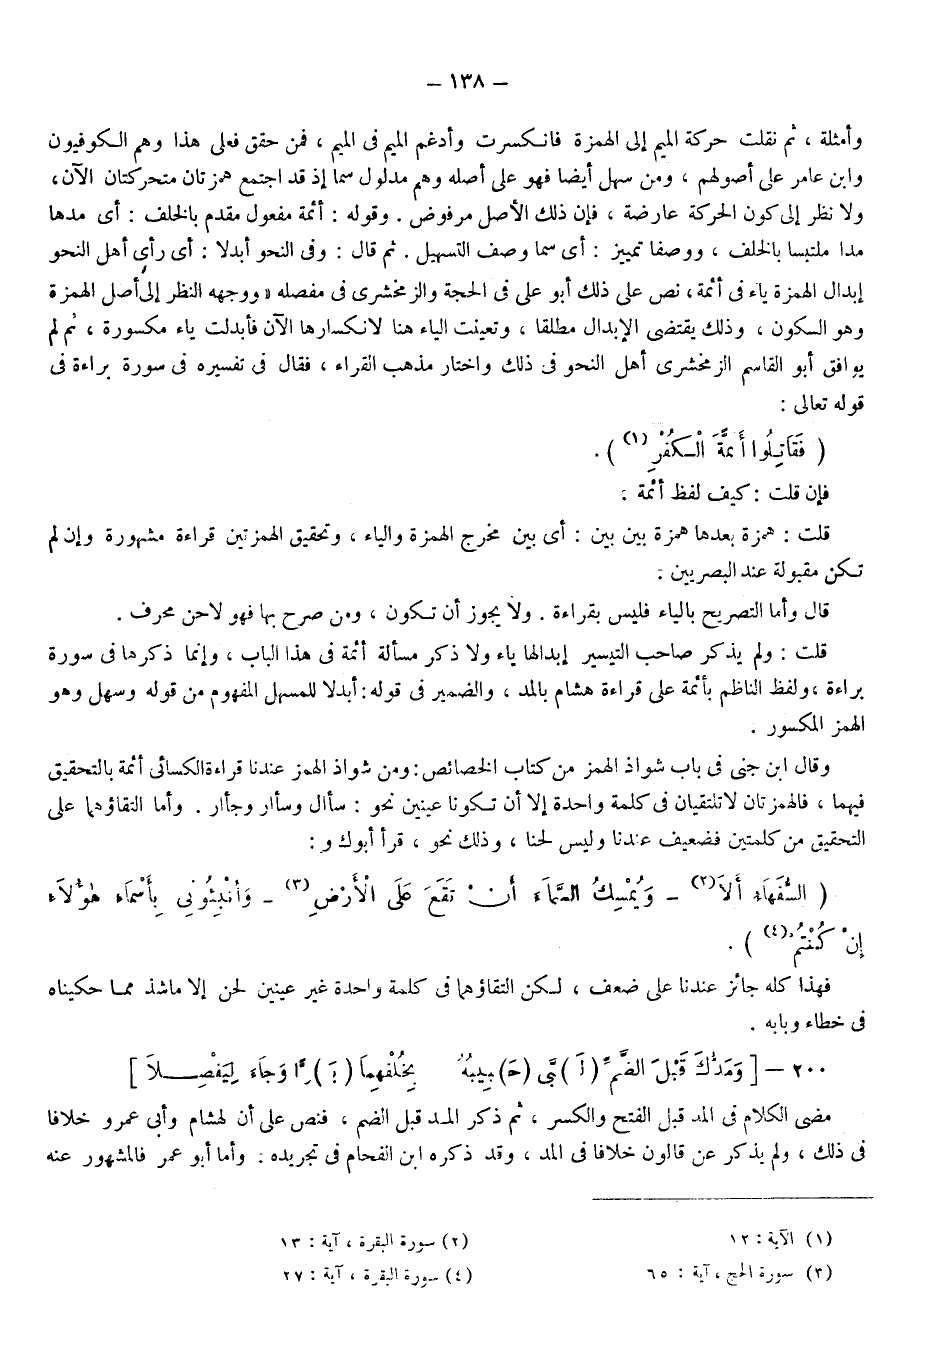 — ١٣٨ —
وأمثلة ، ثم نقلت حركة الميم إلى الهمزة فانكسرت وأدغم الميم فى الميم ، فمن حقق فعلى هذا وهم الكوفيون
وابن عامر على أصولهم ، ومن سهل أيضا فهو على أصله وهم مدلول سما إذ قد اجتمع همزتان متحركتان الآن ،
ولا نظر إلى كون الحركة عارضة ، فإن ذلك الأصل مرفوض . وقوله : أئمة مفعول مقدم بالخلف : أى مدها
مدا ملتبسا بالخلف ، ووصفا تمييز : أى سما وصف التسهيل . ثم قال : وفى النحو أبدلا : أى رأى أهل النحو
إبدال الهمزة ياء فى أئمة ، نص على ذلك أبو على فى الحجة والزمخشرى فى مفصله « ووجهه النظر إلى أصل الهمزة
وهو السكون ، وذلك يقتضى الإبدال مطلقا ، وتعينت الياء هنا لانكسارها الآن فأبدلت ياء مكسورة ، ثم لم
يوافق أبو القاسم الزمخشرى أهل النحو فى ذلك واختار مذهب القراء ، فقال فى تفسيره فى سورة براءة فى
قوله تعالى :
( فَقَاتِلُوا أَئِمَّةَ الْكُفْرِ (١) ) .
فإن قلت : كيف لفظ أئمة :
قلت : همزة بعدها همزة بين بين : أى بين مخرج الهمزة والياء ، وتحقيق الهمزتين قراءة مشهورة وإن لم
تكن مقبولة عند البصريين :
قال وأما التصريح بالياء فليس بقراءة . ولا يجوز أن تكون ، ومن صرح بها فهو لاحن محرف .
قلت : ولم يذكر صاحب التيسير إبدالها ياء ولا ذكر مسألة أئمة فى هذا الباب ، وإنما ذكرها فى سورة
براءة ، ولفظ الناظم بأئمة على قراءة هشام بالمد ، والضمير فى قوله : أبدلا للمسهل المفهوم من قوله وسهل وهو
الهمز المكسور .
وقال ابن جنى فى باب شواذ الهمز من كتاب الخصائص : ومن شواذ الهمز عندنا قراءة الكسائى أئمة بالتحقيق
فيهما ، فالهمزتان لا تلتقيان فى كلمة واحدة إلا أن تكونا عينين نحو : سأال وسأار وجأار . وأما التقاؤهما على
التحقيق من كلمتين فضعيف عندنا وليس لحنا ، وذلك نحو ، قرأ أبوك و :
( السُّفَهَاءُ أَلَا (٢) – وَيُمْسِكُ السَّمَاءَ أَنْ تَقَعَ عَلَى الْأَرْضِ (٣) – وَأَنْبِئُونِى بِأَسْمَاءِ هٰؤُلَاءِ
إِنْ كُنْتُمْ (٤) ) .
فهذا كله جائز عندنا على ضعف ، لكن التقاؤهما فى كلمة واحدة غير عينين لحن إلا ما شذ مما حكيناه
فى خطاء وبابه .
٢٠٠ – [ وَمَدُّكَ قَبْلَ الضَّمِّ (لَـ) بَّى (حَـ) بِيبُهُ بِخُلْفِهِمَا (بَـ) رًّا وَجَاءَ لِيَفْصِلَا ]
مضى الكلام فى المد قبل الفتح والكسر ، ثم ذكر المد قبل الضم ، فنص على أن لهشام وأبى عمرو خلافا
فى ذلك ، ولم يذكر عن قالون خلافا فى المد ، وقد ذكره ابن الفحام فى تجريده : وأما أبو عمر فالمشهور عنه
(١) الآية : ١٢
(٢) سورة البقرة ، آية : ١٣
(٣) سورة الحج ، آية : ٦٥
(٤) سورة البقرة ، آية : ٢٧